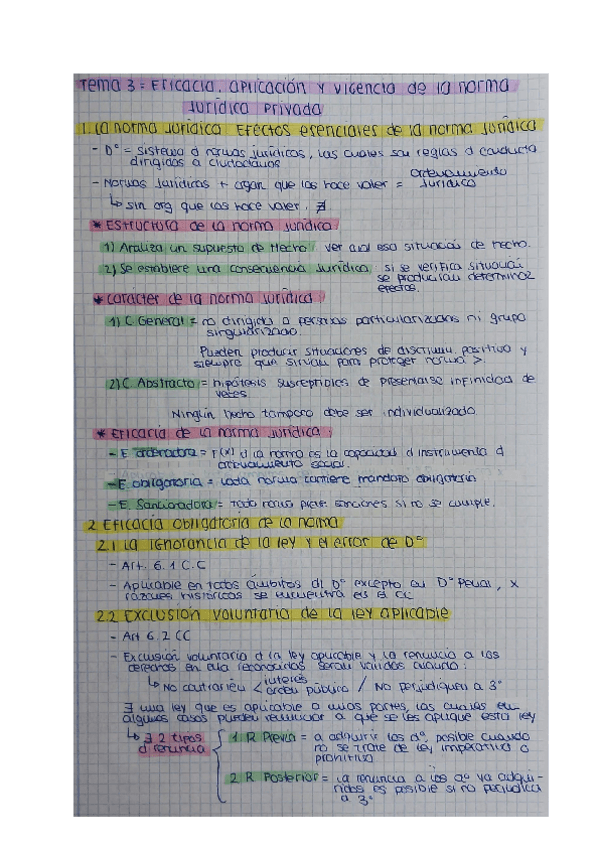 Tema 3: Eficacia, aplicación y vigencia de la norma
Jurídica Privada
1. La norma Jurídica. Efectos esenciales de la norma Jurídica
- Dº = sistema d normas jurídicas, las cuales son reglas d conducta
dirigidas a ciudadanos
- Normas Jurídicas + organ que las hace valer = ordenamiento
Jurídico
↳ sin org que las hace valer, ∄.
* Estructura de la norma Jurídica
1) Analiza un supuesto de Hecho: ver cual esa situación de hecho.
2) Se establece una consecuencia Jurídica si se verifica situación
se producirán determinaz
efectos.
* Carácter de la norma Jurídica
1) C General = no dirigida a personas particularizadas ni grupo
singularizado.
Pueden producir situaciones de discrimin. positiva y
siempre que sirvan para proteger norma >.
2) C Abstracto = hipótesis susceptibles de presentarse infinidad de
veces.
Ningún hecho tampoco debe ser individualizado.
* Eficacia de la norma Jurídica:
- E ordenadora = F(x) d la norma es la capacidad d instrumento d
ordenamiento social.
- E obligatoria = cada norma contiene mandato obligatorio
- E. Sancionadora = toda norma prevé sanciones si no se cumple.
2. Eficacia obligatoria de la norma
2.1 La ignorancia de la ley y el error de Dº
- Art. 6.1 C.C
- Aplicable en todos ámbitos dl Dº excepto en Dº Penal, x
razones históricas se encuentra en el CC.
2.2 Exclusión voluntaria de la ley aplicable
- Art 6.2 CC
- Exclusión voluntaria d la ley aplicable y la renuncia a los
derechos en ella reconocidos serán válidas cuando:
↳ No contraríen < interés
orden público / No perjudiquen a 3º
∃ una ley que es aplicable a unas partes, las cuales en
algunos casos pueden renunciar a que se les aplique esta ley
↳ ∃ 2 tipos
d renuncia
1 R Previa = a adquirir los dº, posible cuando
no se trate de ley imperativa o
prohibitiva
2 R Posterior = la renuncia a los dº ya adqui-
ridos es posible si no perjudica
a 3º